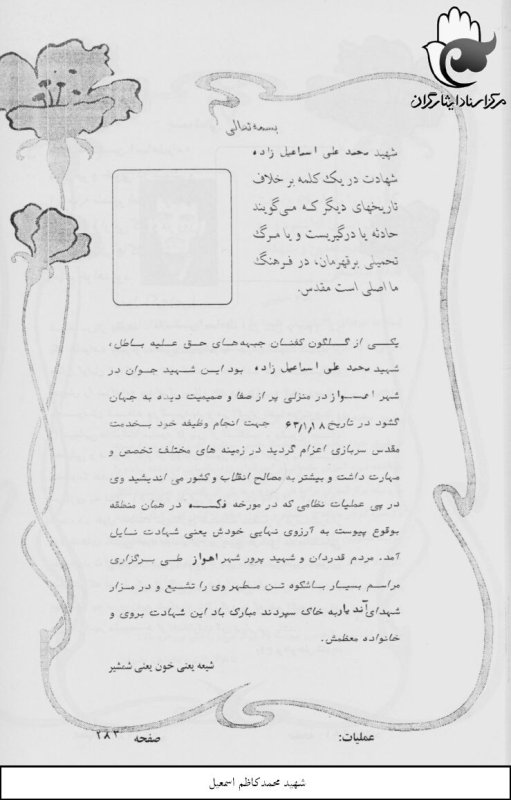 مرکز اسناد ایثارگران
بسمه تعالی
شهید محمد علی اسماعیل زاده
شهادت در یک کلمه بر خلاف
تاریخهای دیگر که می‌گویند
حادثه یا درگیریست و یا مرگ
تحمیلی بر قهرمان، در فرهنگ
ما اصلی است مقدس.
یکی از گلگون کفنان جبهه‌های حق علیه باطل،
شهید محمد علی اسماعیل زاده بود این شهید جوان در
شهر اهواز در منزلی پر از صفا و صمیمیت دیده به جهان
گشود در تاریخ ۶۳/۱/۱۸ جهت انجام وظیفه خود بخدمت
مقدس سربازی اعزام گردید در زمینه های مختلف تخصص و
مهارت داشت و بیشتر به مصالح انقلاب و کشور می اندیشید وی
در پی عملیات نظامی که در مورخه در همان منطقه
بوقوع پیوست به آرزوی نهایی خودش یعنی شهادت نایل
آمد. مردم قدردان و شهید پرور شهر اهواز طی برگزاری
مراسم بسیار باشکوه تن مطهر وی را تشیع و در مزار
شهدای به خاک سپردند مبارک باد این شهادت بروی و
خانواده معظمش.
شیعه یعنی خون یعنی شمشیر
عملیات: صفحه ۲۸۳
شهید محمدکاظم اسمعیل